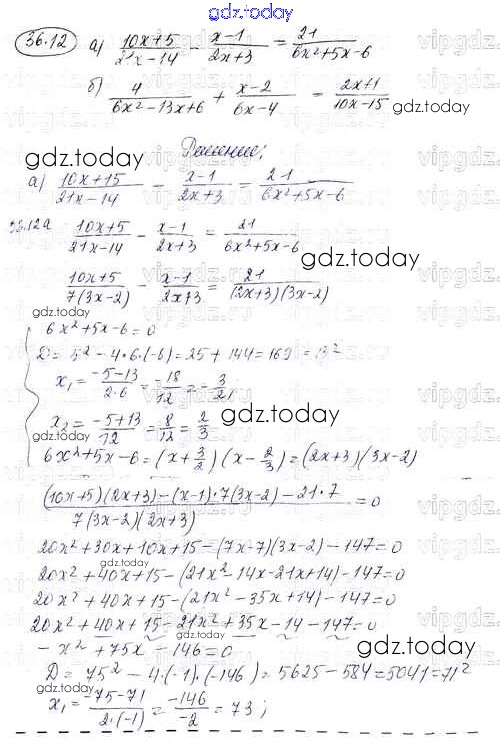 gdz.today
36.12 а) (10x+5)/(21x-14) - (x-1)/(2x+3) = 21/(6x²+5x-6)
б) 4/(6x²-13x+6) + (x-2)/(6x-4) = (2x+1)/(10x-15)
Решение:
gdz.today
а) (10x+15)/(21x-14) - (x-1)/(2x+3) = 21/(6x²+5x-6)
36.12а (10x+5)/(21x-14) - (x-1)/(2x+3) = 21/(6x²+5x-6)
gdz.today
(10x+5)/(7(3x-2)) - (x-1)/(2x+3) = 21/((2x+3)(3x-2))
gdz.today
6x²+5x-6=0
D=5²-4·6·(-6)=25+144=169=13²
x₁=(-5-13)/(2·6)=-18/12=-3/2;
x₂=(-5+13)/12=8/12=2/3
gdz.today
gdz.today
6x²+5x-6=(x+3/2)(x-2/3)=(2x+3)(3x-2)
((10x+5)(2x+3)-(x-1)·7(3x-2)-21·7)/(7(3x-2)(2x+3))=0
gdz.today
20x²+30x+10x+15-(7x-7)(3x-2)-147=0
20x²+40x+15-(21x²-14x-21x+14)-147=0
gdz.today
20x²+40x+15-(21x²-35x+14)-147=0
20x²+40x+15-21x²+35x-14-147=0
gdz.today
-x²+75x-146=0
D=75²-4·(-1)·(-146)=5625-584=5041=71²
gdz.today
x₁=(-75-71)/(2·(-1))=-146/-2=73;